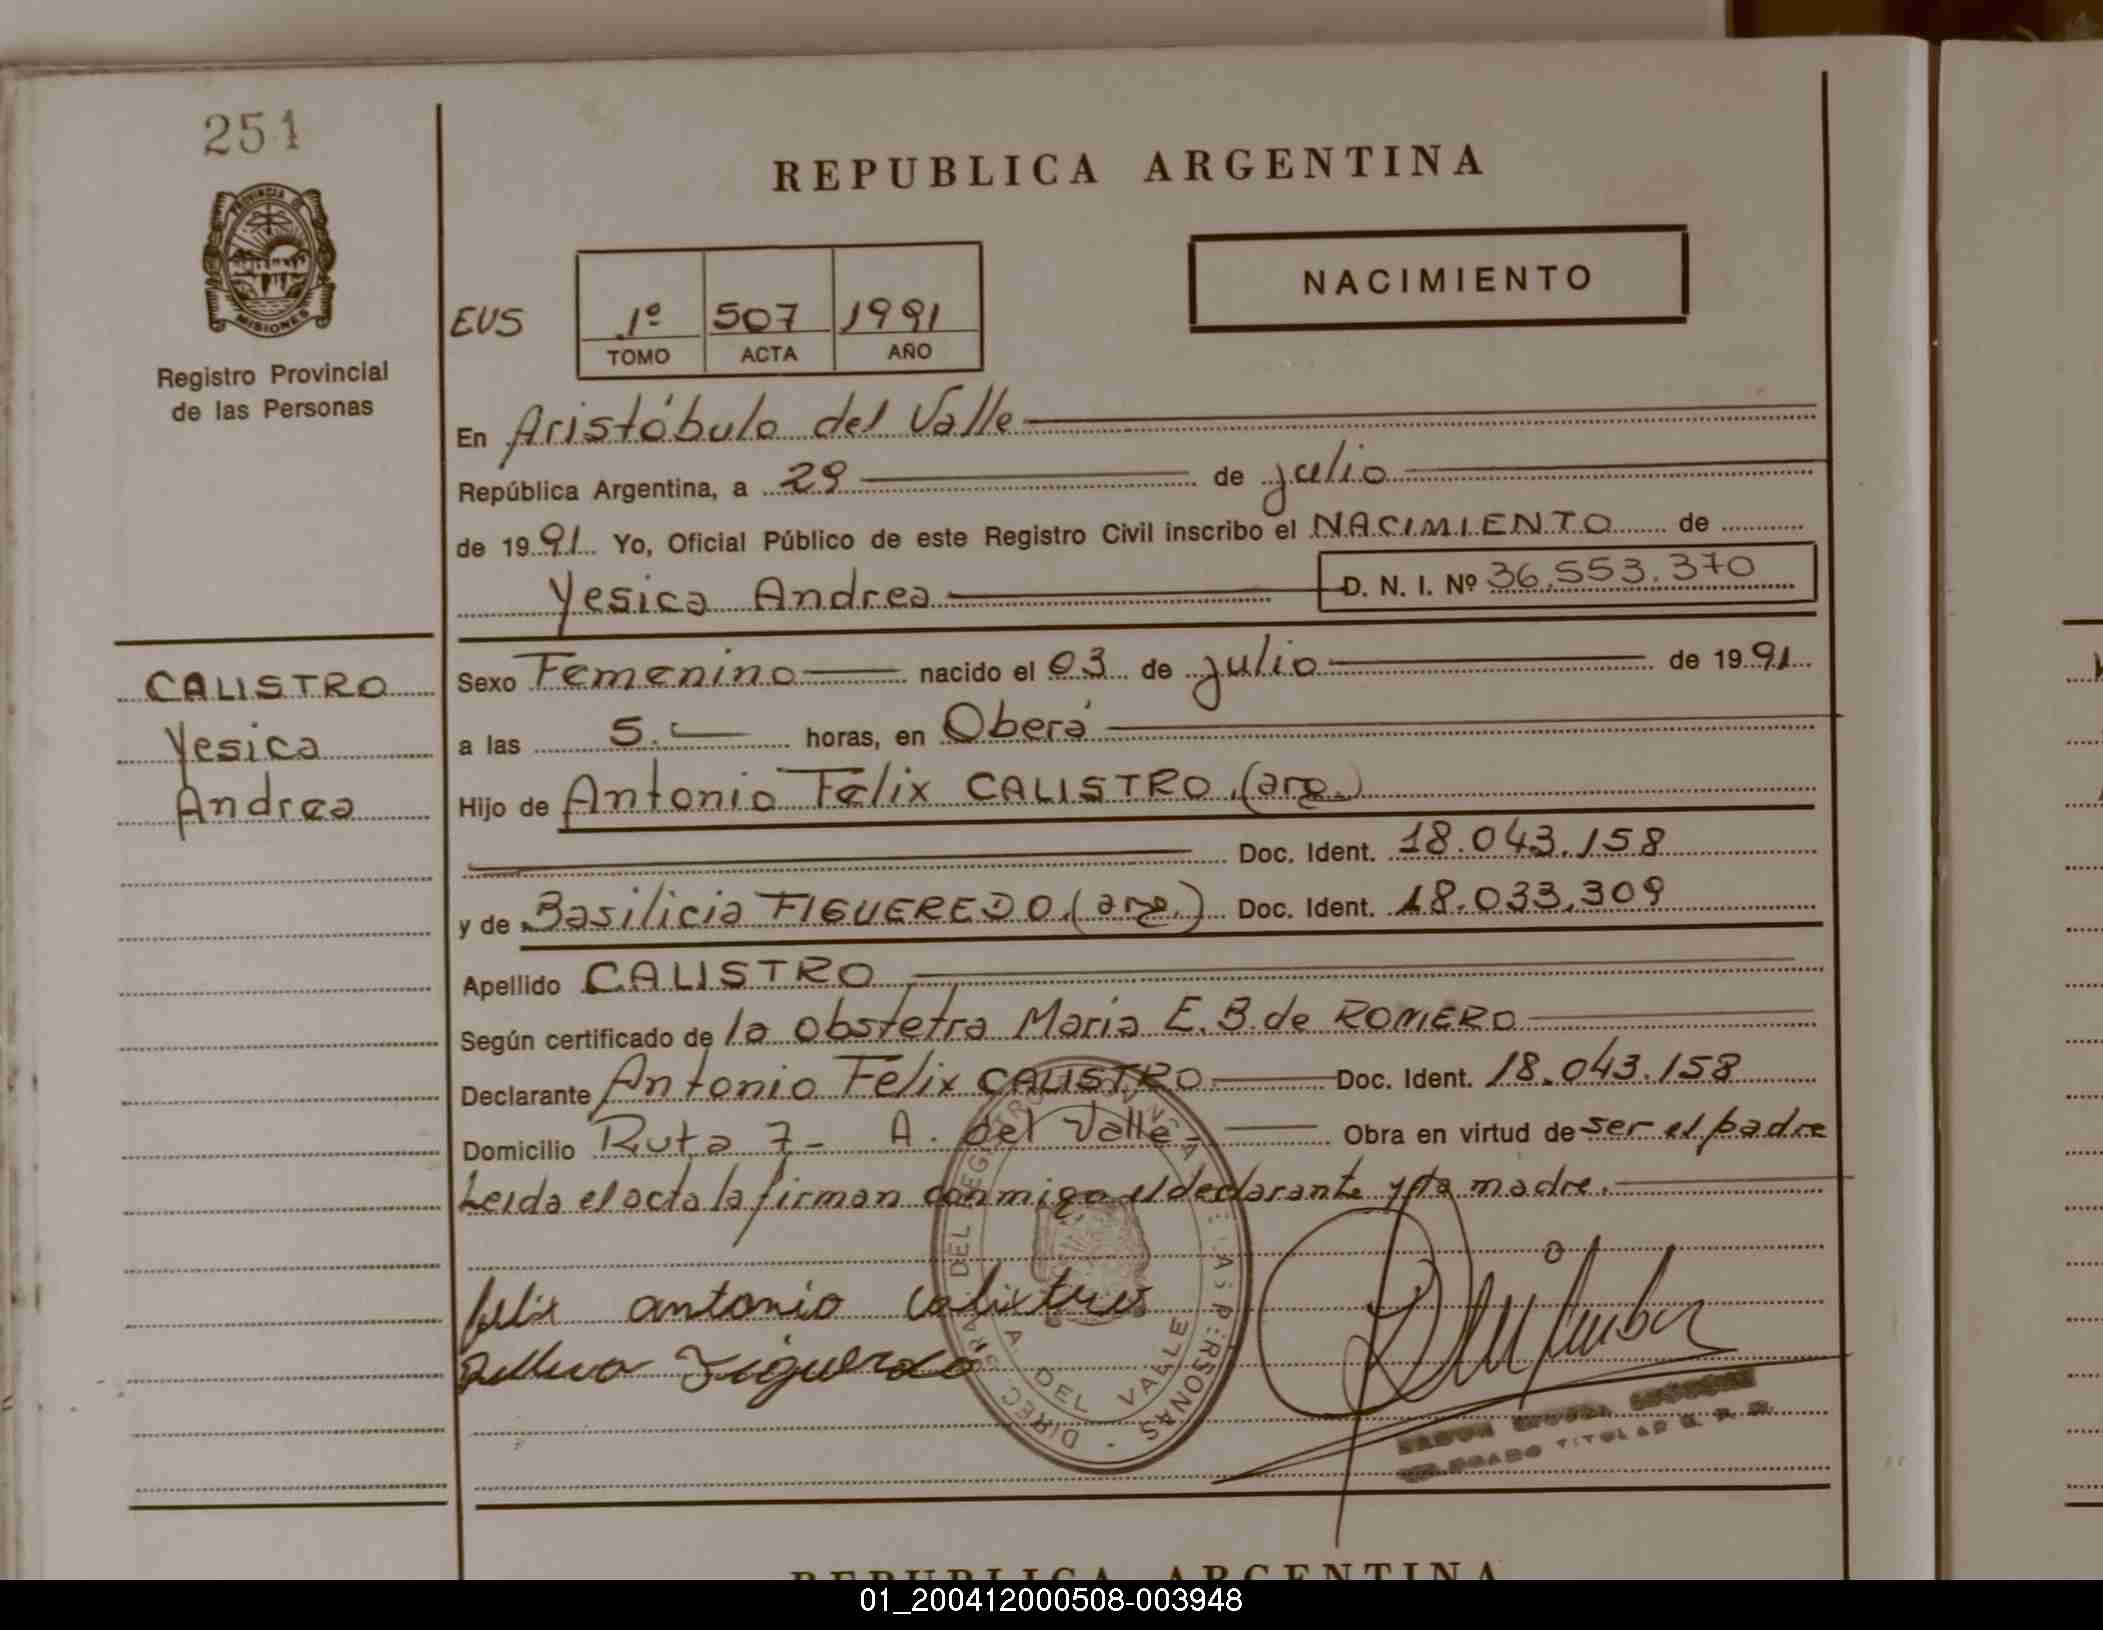 251
PROVINCIA DE
MISIONES
Registro Provincial
de las Personas
REPUBLICA ARGENTINA
NACIMIENTO
EUS
1º 507 1991
TOMO ACTA AÑO
En Aristóbulo del Valle
República Argentina, a 29 de julio
de 1991 Yo, Oficial Público de este Registro Civil inscribo el NACIMIENTO de
Yesica Andrea D. N. I. Nº 36.553.370
CALISTRO
Yesica
Andrea
Sexo Femenino nacido el 03 de julio de 1991
a las 5.- horas, en Oberá
Hijo de Antonio Felix CALISTRO (arg.)
Doc. Ident. 18.043.158
y de Basilicia FIGUEREDO (arg.) Doc. Ident. 18.033.309
Apellido CALISTRO
Según certificado de la obstetra Maria E. B. de ROMERO
Declarante Antonio Felix CALISTRO Doc. Ident. 18.043.158
Domicilio Ruta 7- A. del Valle- Obra en virtud de ser el padre
Leida el acta la firman conmigo el declarante y la madre.
felix antonio calixtro
Figueredo
A DEL VALLE
TITULAR
REPUBLICA ARGENTINA
01_200412000508-003948